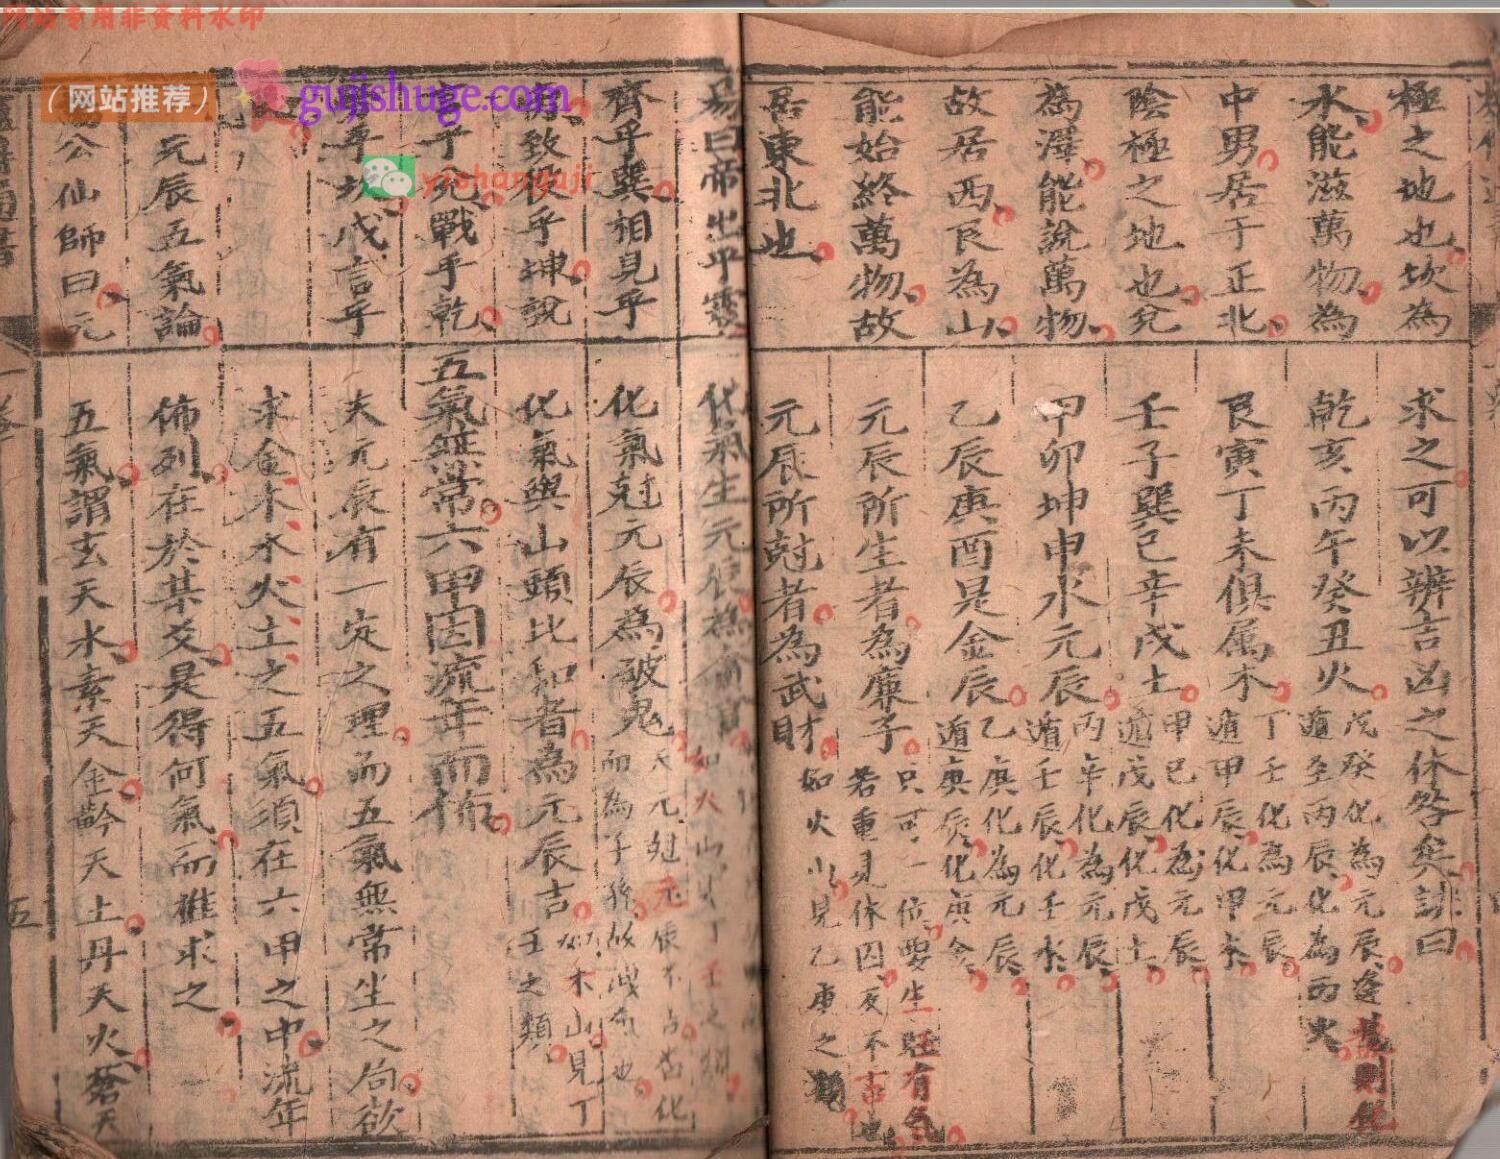 网站专用非资料水印
（网站推荐）
gujishuge.com
yishanguji
極之地也坎為
水能滋萬物為
中男居于正北
陰極之地也兌
為澤能說萬物
故居西艮為山
能始終萬物故
居東北也
易曰帝出乎震
齊乎巽相見乎
致役乎坤說
言乎兌戰乎乾
勞乎坎成言乎
元辰五氣論
公仙師曰元
求之可以辨吉凶之休咎矣訣曰
乾亥丙午癸丑火戊癸化為元辰逢龍則化
遁至丙辰化為丙火
艮寅丁未俱属木丁壬化為元辰
遁甲辰化甲木
壬子巽巳辛戌土甲己化為元辰
遁戊辰化戊土
甲卯坤申水元辰丙辛化為元辰
遁壬辰化壬水
乙辰庚酉是金辰乙庚化為元辰
遁庚辰化庚金
元辰所生者為廉子只可一位要生旺有氣
若重見休囚反不吉也
元辰所尅者為武財如火山見乙庚之類
化氣生元辰為
化氣尅元辰為破鬼
而為子孫故
化氣與山頭比和者為元辰吉如木山見丁
壬之類
五氣無常六甲因流年而佈
夫元辰有一定之理而五氣無常坐之局欲
求金木水火土之五氣須在六甲之中流年
佈列在於某爻是得何氣而推求之
五氣謂玄天水素天金齡天土丹天火蒼天
五